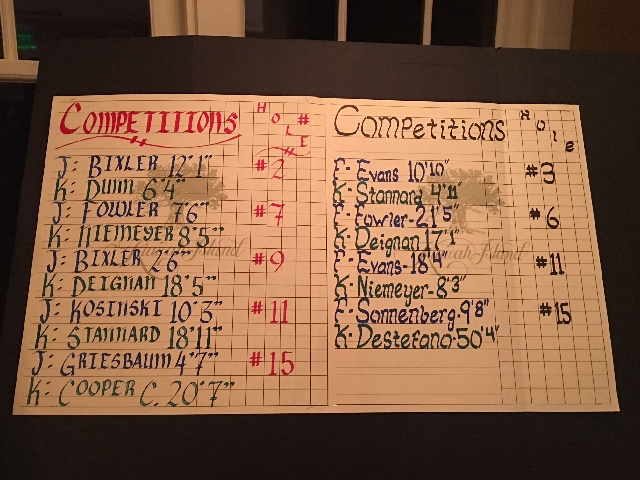 COMPETITIONS
HOLE #
J: BIXLER 12'1" #2
K: DUNN 6'4"
J: FOWLER 7'6" #7
K: NIEMEYER 8'5"
J: BIXLER 2'6" #9
K: DEIGNAN 18'5"
J: KOSINSKI 10'3" #11
K: STANNARD 18'11"
J: GRIESBAUM 4'7" #15
K: COOPER C. 20'7"
Competitions
Hole
F- Evans 10'10" #3
K- Stannard 4'11"
F- Fowler- 21'5" #6
K- Deignan 17'1"
F- Evans- 18'4" #11
K- Niemeyer- 8'3"
F- Sonnenberg- 9'8" #15
K- Destefano- 50'4"
Island